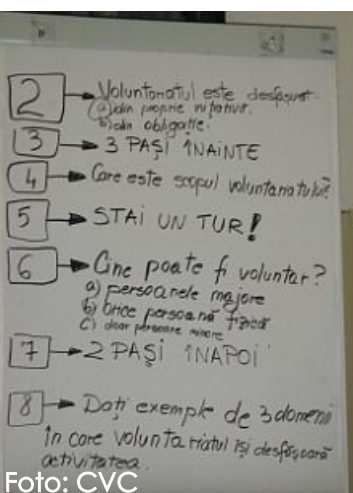 2 → Voluntariatul este desfășurat:
a) din proprie inițiativă.
b) din obligație.
3 → 3 PAȘI ÎNAINTE
4 → Care este scopul voluntariatului?
5 → STAI UN TUR!
6 → Cine poate fi voluntar?
a) persoanele majore
b) orice persoană fizică
c) doar persoane minore
7 → 2 PAȘI ÎNAPOI
8 → Dați exemple de 3 domenii
în care voluntariatul își desfășoară
activitatea.
Foto: CVC